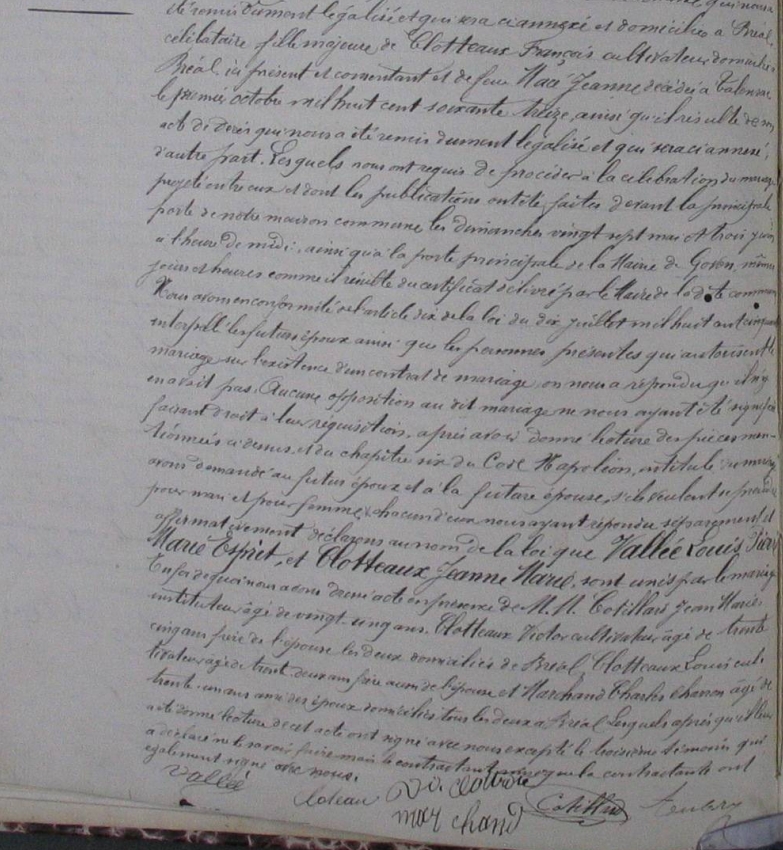 été remis dûment légalisé et qui sera ci annexé et domiciliée à Bréal
célibataire, fille majeure de Clotteaux François cultivateur domicilié à
Bréal, ici présent et consentant et de feue Macé Jeanne décédée à Talensac
le premier octobre mil huit cent soixante treize, ainsi qu'il résulte de son
acte de décès qui nous a été remis dûment légalisé et qui sera ci annexé,
d'autre part. Lesquels nous ont requis de procéder à la célébration du mariage
projeté entre eux et dont les publications ont été faites devant la principale
porte de notre maison commune les dimanches vingt sept mai et trois juin
à l'heure de midi, ainsi qu'à la porte principale de la Mairie de Goven, mêmes
jours et heures comme il résulte du certificat délivré par le Maire de la dite commune
Nous avons en conformité de l'article dix de la loi du dix juillet mil huit cent cinquante
interpellé les futurs époux ainsi que les personnes présentes qui autorisent le
mariage sur l'existence d'un contrat de mariage, on nous a répondu qu'il n'y
en avait pas. Aucune opposition au dit mariage ne nous ayant été signifiée
faisant droit à leur réquisition, après avoir donné lecture des pièces men-
tionnées ci dessus, et du chapitre six du Code Napoléon, intitulé, du mariage
avons demandé au futur époux et à la future épouse, s'ils veulent se prendre
pour mari et pour femme, chacun d'eux nous ayant répondu séparément et
affirmativement déclarons au nom de la loi que Vallée Louis Pierre
Marie Esprit, et Clotteaux Jeanne Marie, sont unis par le mariage
En foi de quoi nous avons dressé acte en présence de M. M. Cotillard Jean Marie,
instituteur, âgé de vingt-un ans, Clotteaux Victor cultivateur âgé de trente
cinq ans frère de l'épouse les deux domiciliés de Bréal, Clotteaux Louis cul-
tivateur âgé de trente deux ans frère aussi de l'épouse et Marchand Charles charron âgé de
trente un ans ami des époux domiciliés tous les deux à Bréal Lesquels après qu'il leur
a été donné lecture de cet acte ont signé avec nous excepté le troisième témoin qui
a déclaré ne le savoir faire mais le contractant ainsi que la contractante ont
également signé avec nous.
Vallée
marchand